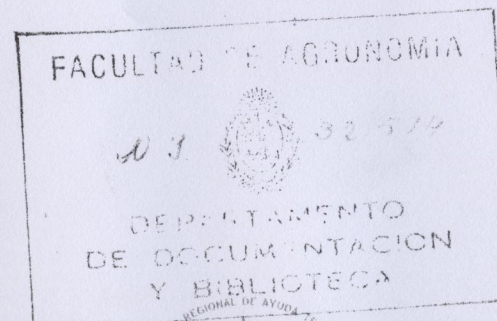 FACULTAD DE AGRONOMIA
DEPARTAMENTO
DE DOCUMENTACION
Y BIBLIOTECA
REGIONAL DE AYUDA